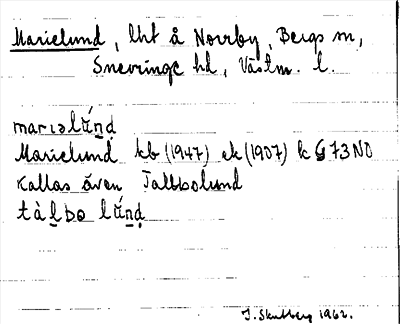 Marielund, lht å Norrby, Bergs sn,
Snevringe hd, Västm. l.
marɪəlúṇḍ
Marielund kb (1947) ek (1907) k G 73 NO
Kallas även Tallbolund
tàḷbo lúṇḍ
J. Skutberg 1962.